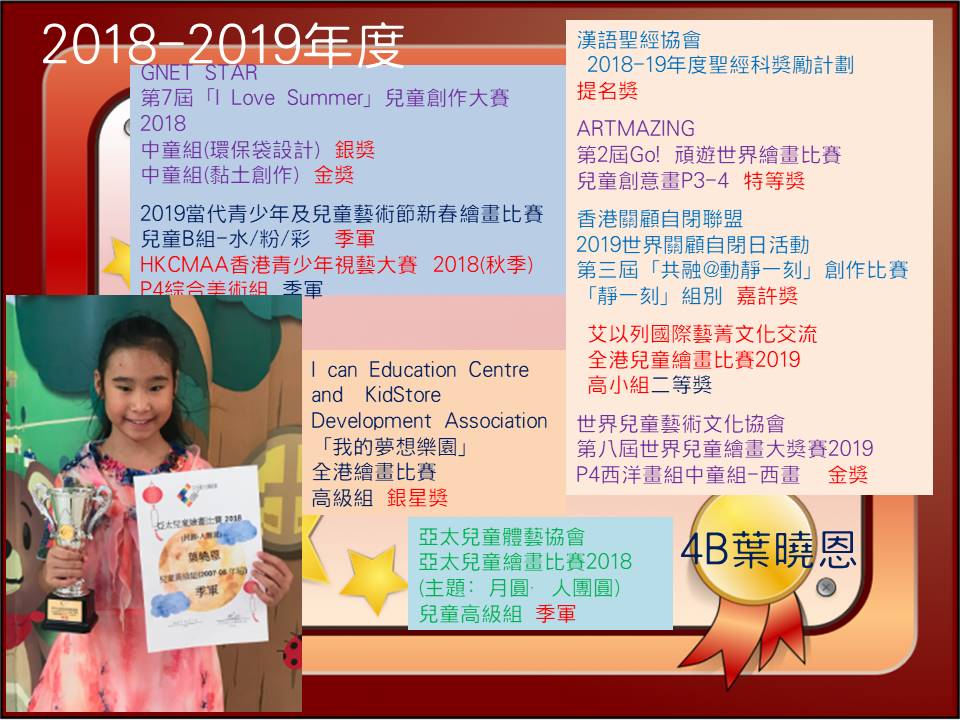 2018-2019年度
GNET STAR
第7屆「I Love Summer」兒童創作大賽
2018
中童組(環保袋設計) 銀獎
中童組(黏土創作) 金獎
2019當代青少年及兒童藝術節新春繪畫比賽
兒童B組-水/粉/彩 季軍
HKCMAA香港青少年視藝大賽 2018(秋季)
P4綜合美術組 季軍
漢語聖經協會
2018-19年度聖經科獎勵計劃
提名獎
ARTMAZING
第2屆Go! 頑遊世界繪畫比賽
兒童創意畫P3-4 特等獎
香港關顧自閉聯盟
2019世界關顧自閉日活動
第三屆「共融@動靜一刻」創作比賽
「靜一刻」組別 嘉許獎
艾以列國際藝菁文化交流
全港兒童繪畫比賽2019
高小組二等獎
世界兒童藝術文化協會
第八屆世界兒童繪畫大獎賽2019
P4西洋畫組中童組-西畫 金獎
I can Education Centre
and KidStore
Development Association
「我的夢想樂園」
全港繪畫比賽
高級組 銀星獎
亞太兒童體藝協會
亞太兒童繪畫比賽2018
(主題: 月圓· 人團圓)
兒童高級組 季軍
4B葉曉恩
亞太兒童繪畫比賽 2018
葉曉恩
季軍